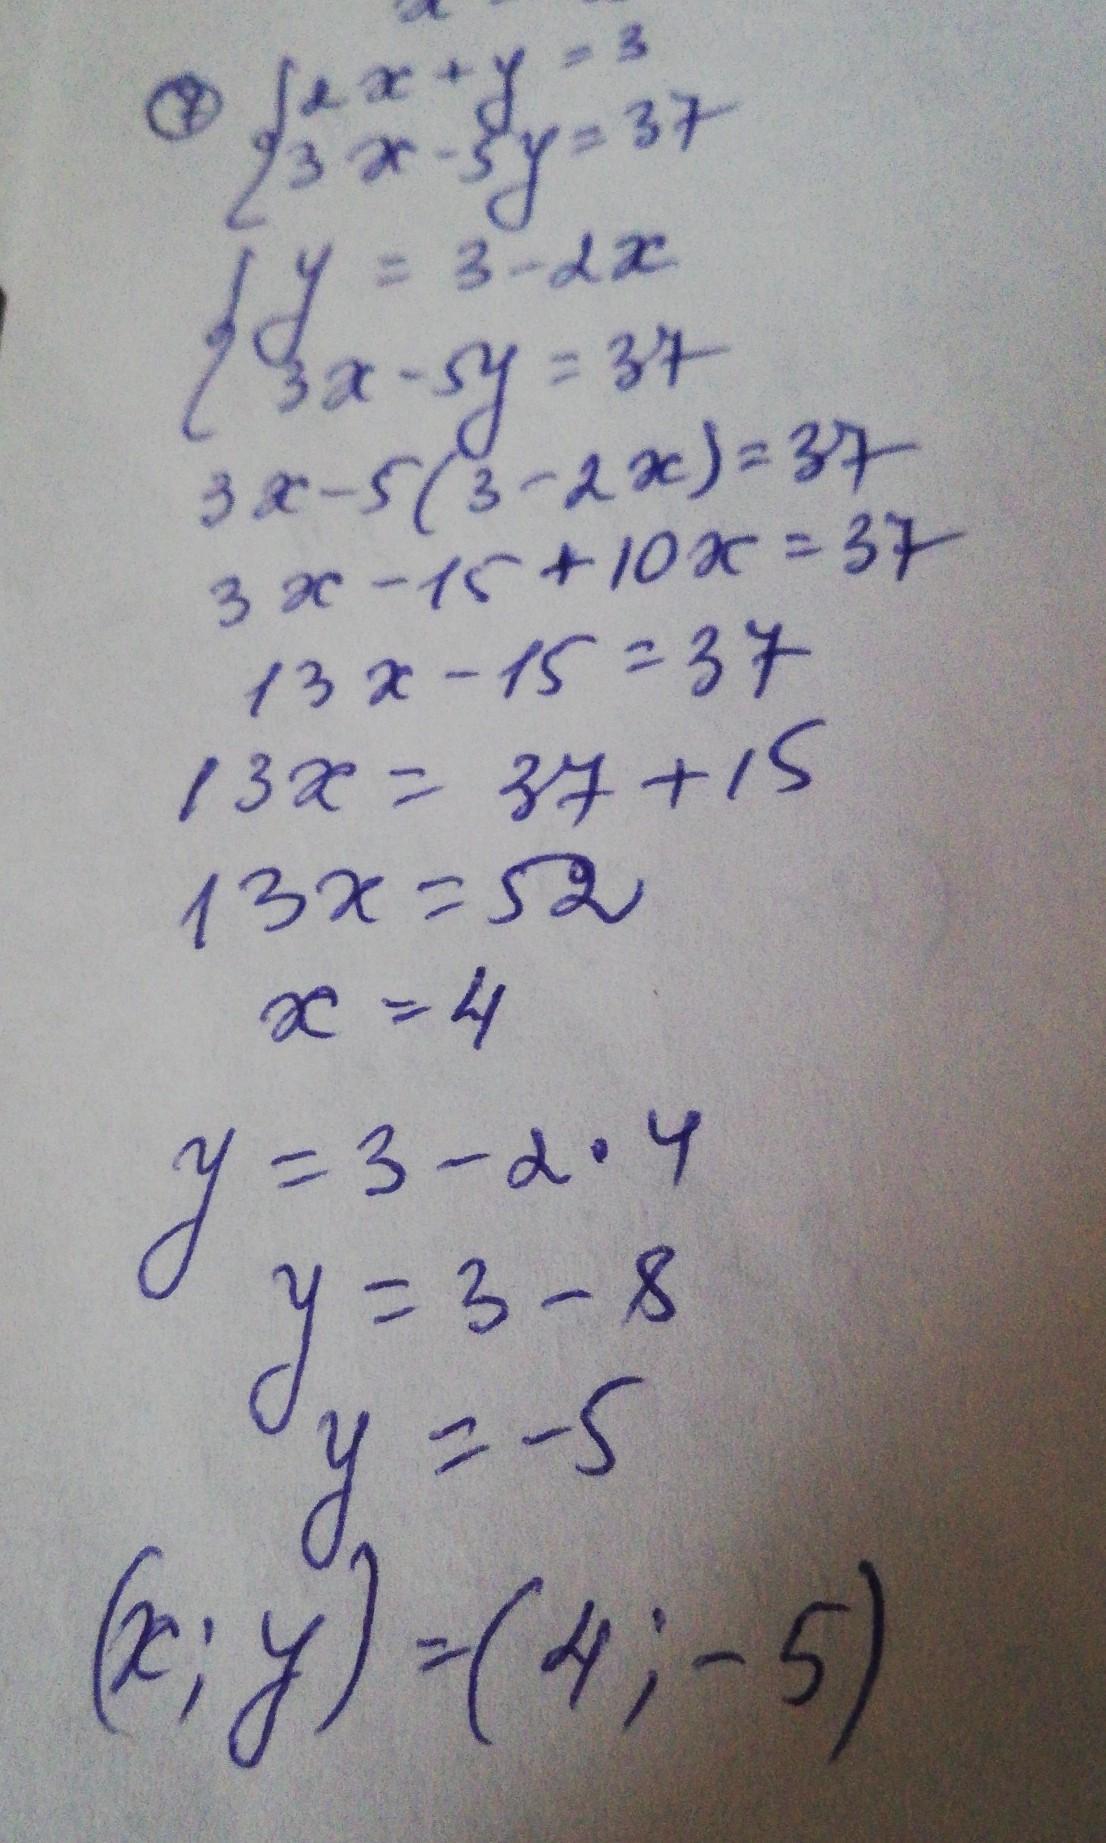 {2x + y = 3
3x - 5y = 37
{y = 3 - 2x
3x - 5y = 37
3x - 5(3 - 2x) = 37
3x - 15 + 10x = 37
13x - 15 = 37
13x = 37 + 15
13x = 52
x = 4
y = 3 - 2 · 4
y = 3 - 8
y = -5
(x; y) = (4; -5)